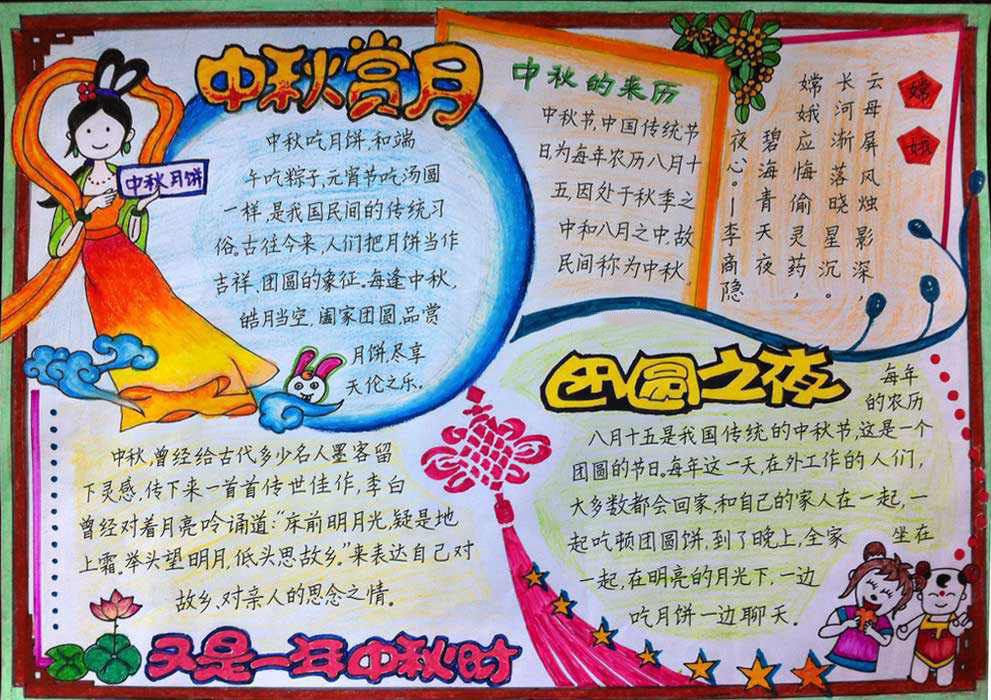 中秋赏月
中秋月饼
中秋吃月饼,和端
午吃粽子,元宵节吃汤圆
一样,是我国民间的传统习
俗。古往今来,人们把月饼当作
吉祥、团圆的象征。每逢中秋,
皓月当空,阖家团圆,品赏
月饼,尽享
天伦之乐。
中秋的来历
中秋节,中国传统节
日为每年农历八月十
五,因处于秋季之
中和八月之中,故
民间称为中秋。
嫦娥
云母屏风烛影深,
长河渐落晓星沉。
嫦娥应悔偷灵药,
碧海青天夜
夜心。—李商隐
团圆之夜
每年
的农历
八月十五是我国传统的中秋节,这是一个
团圆的节日。每年这一天,在外工作的人们,
大多数都会回家,和自己的家人在一起,一
起吃顿团圆饼,到了晚上,全家
坐在
一起,在明亮的月光下,一边
吃月饼一边聊天.
中秋,曾经给古代多少名人墨客留
下灵感,传下来一首首传世佳作,李白
曾经对着月亮吟诵道:“床前明月光,疑是地
上霜。举头望明月,低头思故乡。”来表达自己对
故乡、对亲人的思念之情。
又是一年中秋时